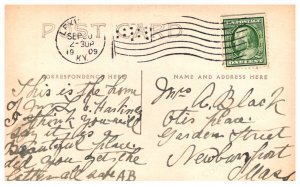 POST CARD
LEXI
SEP 20
2-30P
1909
KY.
CORRESPONDENCE HERE
NAME AND ADDRESS HERE
This is the home
of Mrs Hastings
I think you will
say it is a
beautiful place
did you get the
letter all safe AB
Mrs A. Black
Otis place
Garden Street
Newburyport
Mass.